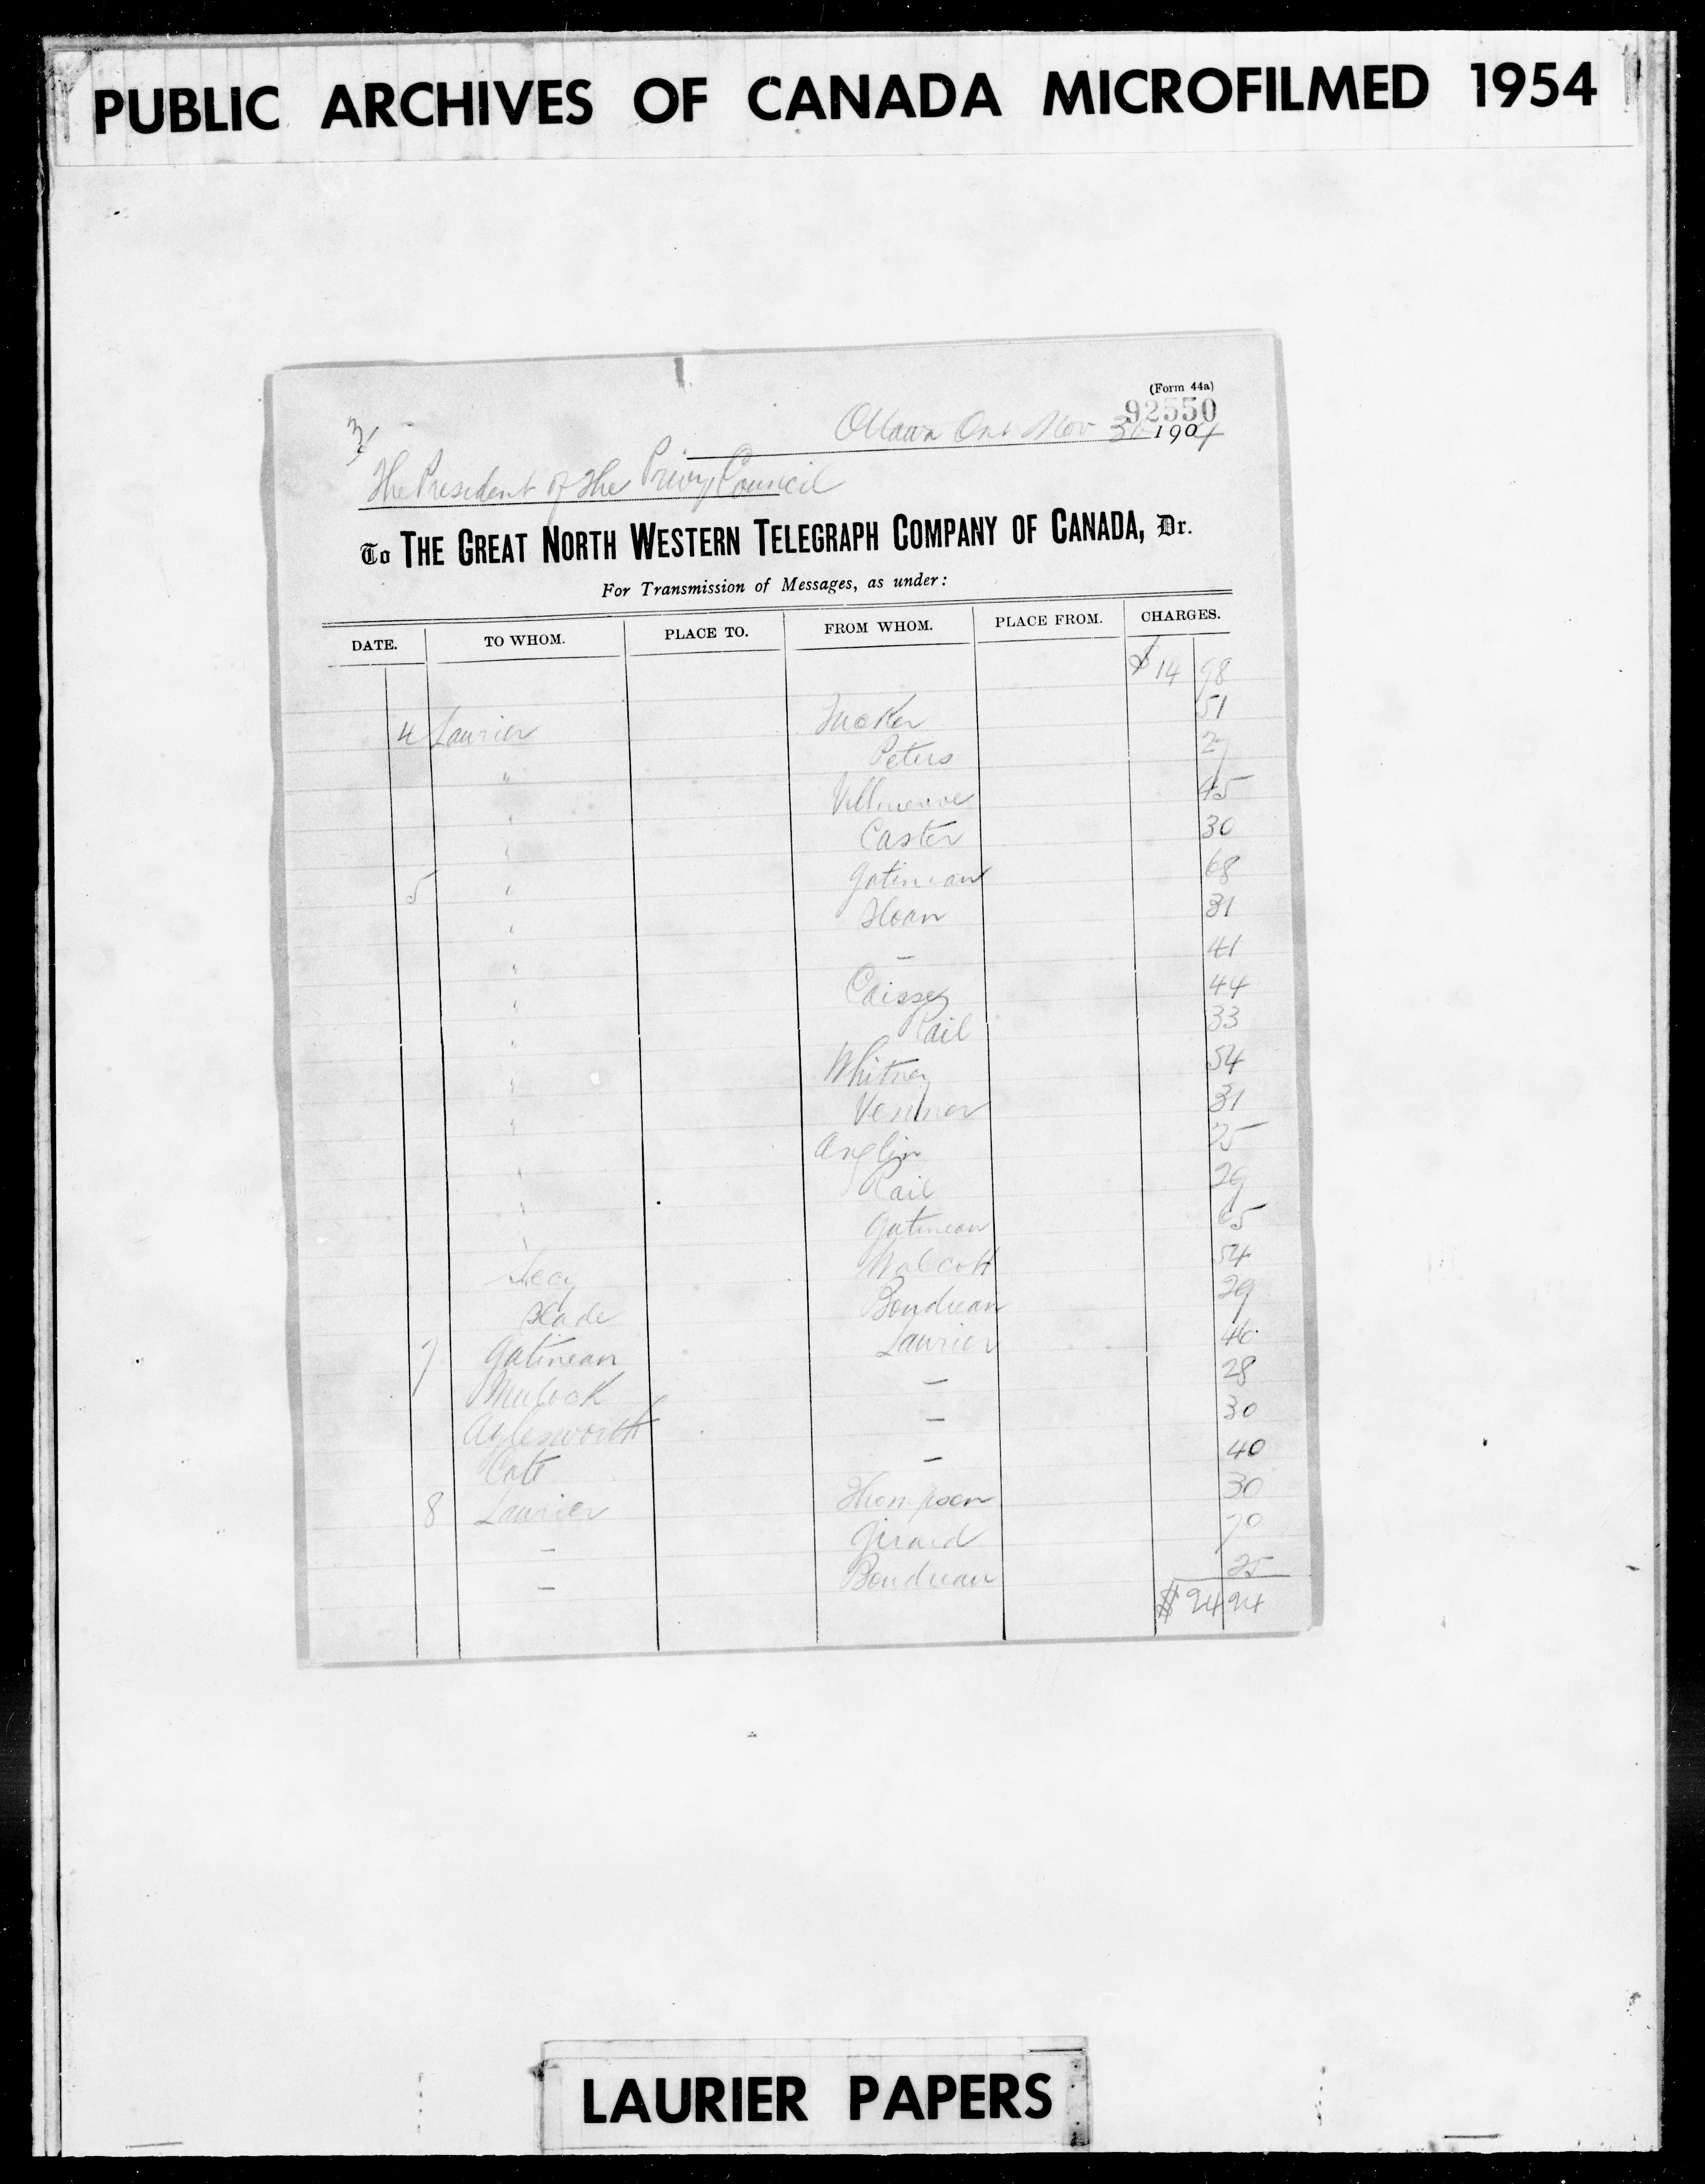 PUBLIC ARCHIVES OF CANADA MICROFILMED 1954
(Form 44a)
92550
3/ Ottawa Ont Nov 30 1904
The President of the Privy Council
To THE GREAT NORTH WESTERN TELEGRAPH COMPANY OF CANADA, Dr.
For Transmission of Messages, as under:
DATE. TO WHOM. PLACE TO. FROM WHOM. PLACE FROM. CHARGES.
$14 98
4 Laurier Tucker 51
" Peters 27
" Villeneuve 45
" Caster 30
5 " Gatineau 68
" Sloan 31
" — 41
" Caissey 44
" Rail 33
" Whitney 54
" Venner 31
" Anglin 25
" Rail 29
" Gatineau 65
Secy Walcott 54
Slade Boudreau 29
7 Gatineau Laurier 46
Mulock — 28
Aylesworth — 30
Cote — 40
8 Laurier Thompson 30
— Girard 70
— Boudreau 25
$24 94
LAURIER PAPERS